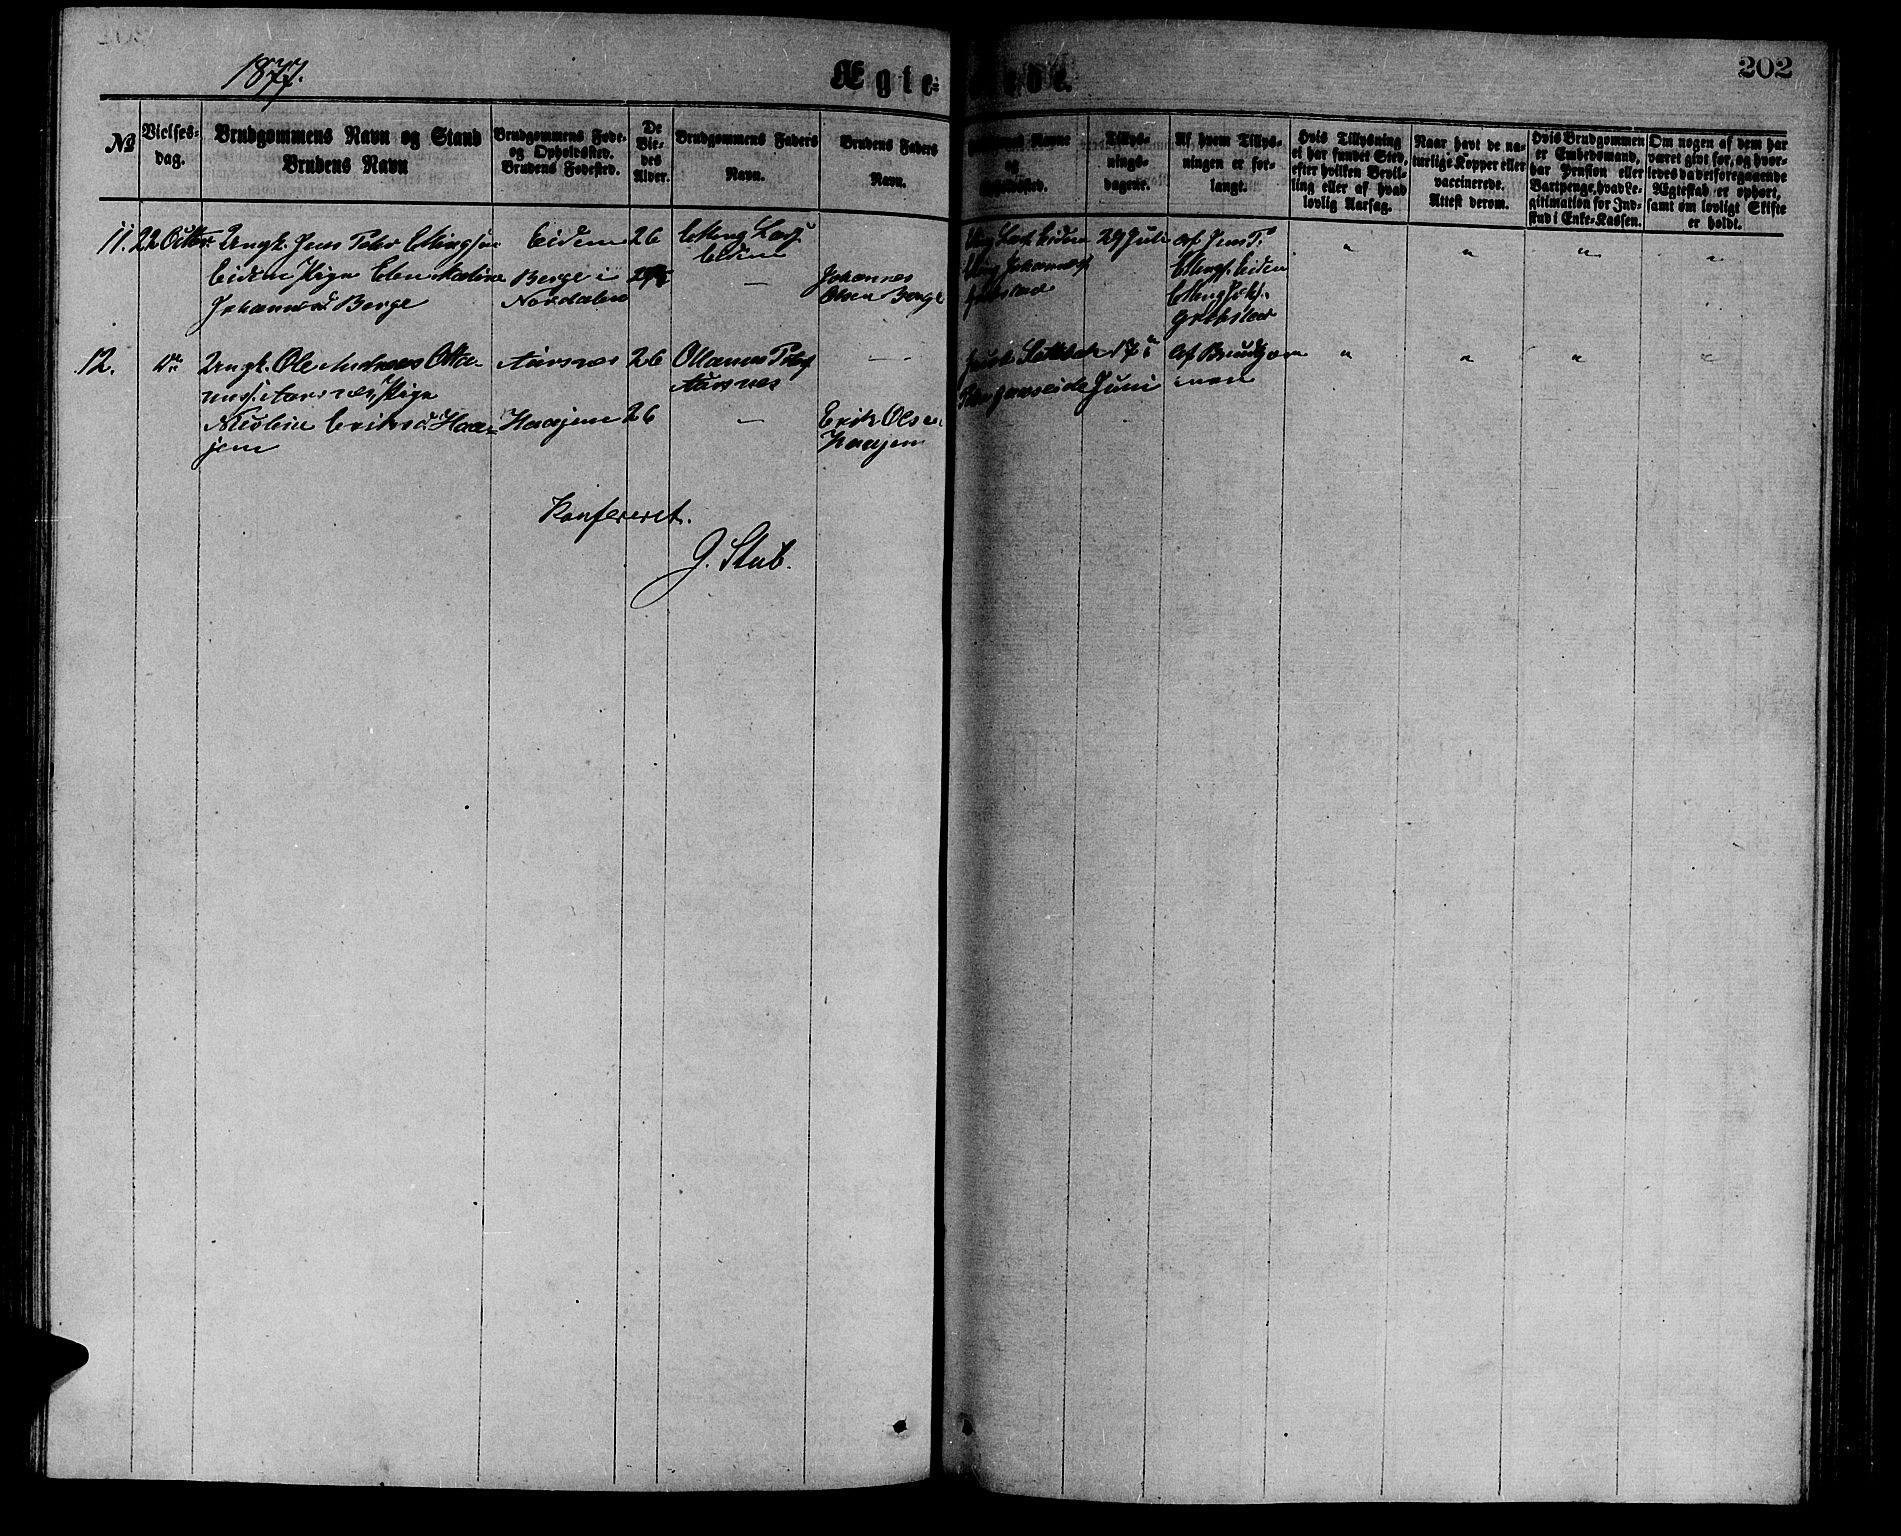 1877.
Ægte-
202
№
Vielses-
dag.
Brudgommens Navn og Stand
Brudens Navn
Brudgommens Føde-
og Opholdssted.
Brudens Fødested.
De
Vie-
des
Alder.
Brudgommens Faders
Navn.
Brudens Faders
Navn.
Navne
og
Tillys-
nings-
dagene.
Af hvem Tillys-
ningen er for-
langt.
Hvis Tillysning
ei har fundet Sted,
efter hvilken Bevil-
ling eller af hvad
lovlig Aarsag.
Naar havt de na-
turlige Kopper eller
vaccinerede.
Attest derom.
Hvis Brudgommen
er Embedsmand,
har Pension eller
Vartpenge, hvad Le-
gitimation for Ind-
skud i Enke-Kassen.
Om nogen af dem har
været givt før, og hvor-
ledes da det foregaaende
Ægteskab er ophørt,
samt om lovligt Skifte
er holdt.
11. 22 Octbr. Ungk. Jens Peter Ellingsen
Eidem Pige Elen Maline
Johannesd. Berge
Eidem
Berge i
Nordalen
26
Elling Lars.
Eidem
—
Johannes
Olsen Berge
Lars. Eidem
Johannes
29 Juli
Af Jens P.
Ellings. Eidem
Elling
" " " "
12. Do Ungk. Ole Andreas Otta-
mus. Aarsnes, Pige
Nicoline Eriksd. Haa-
jem
Aarsnes
Haajem
26
26
Ottanus Peders.
Aarsnes
—
—
Erik Olsen
Haajem
17
Juni
Af Brudgom-
men
" " " "
Konfereret.
J. Stub.